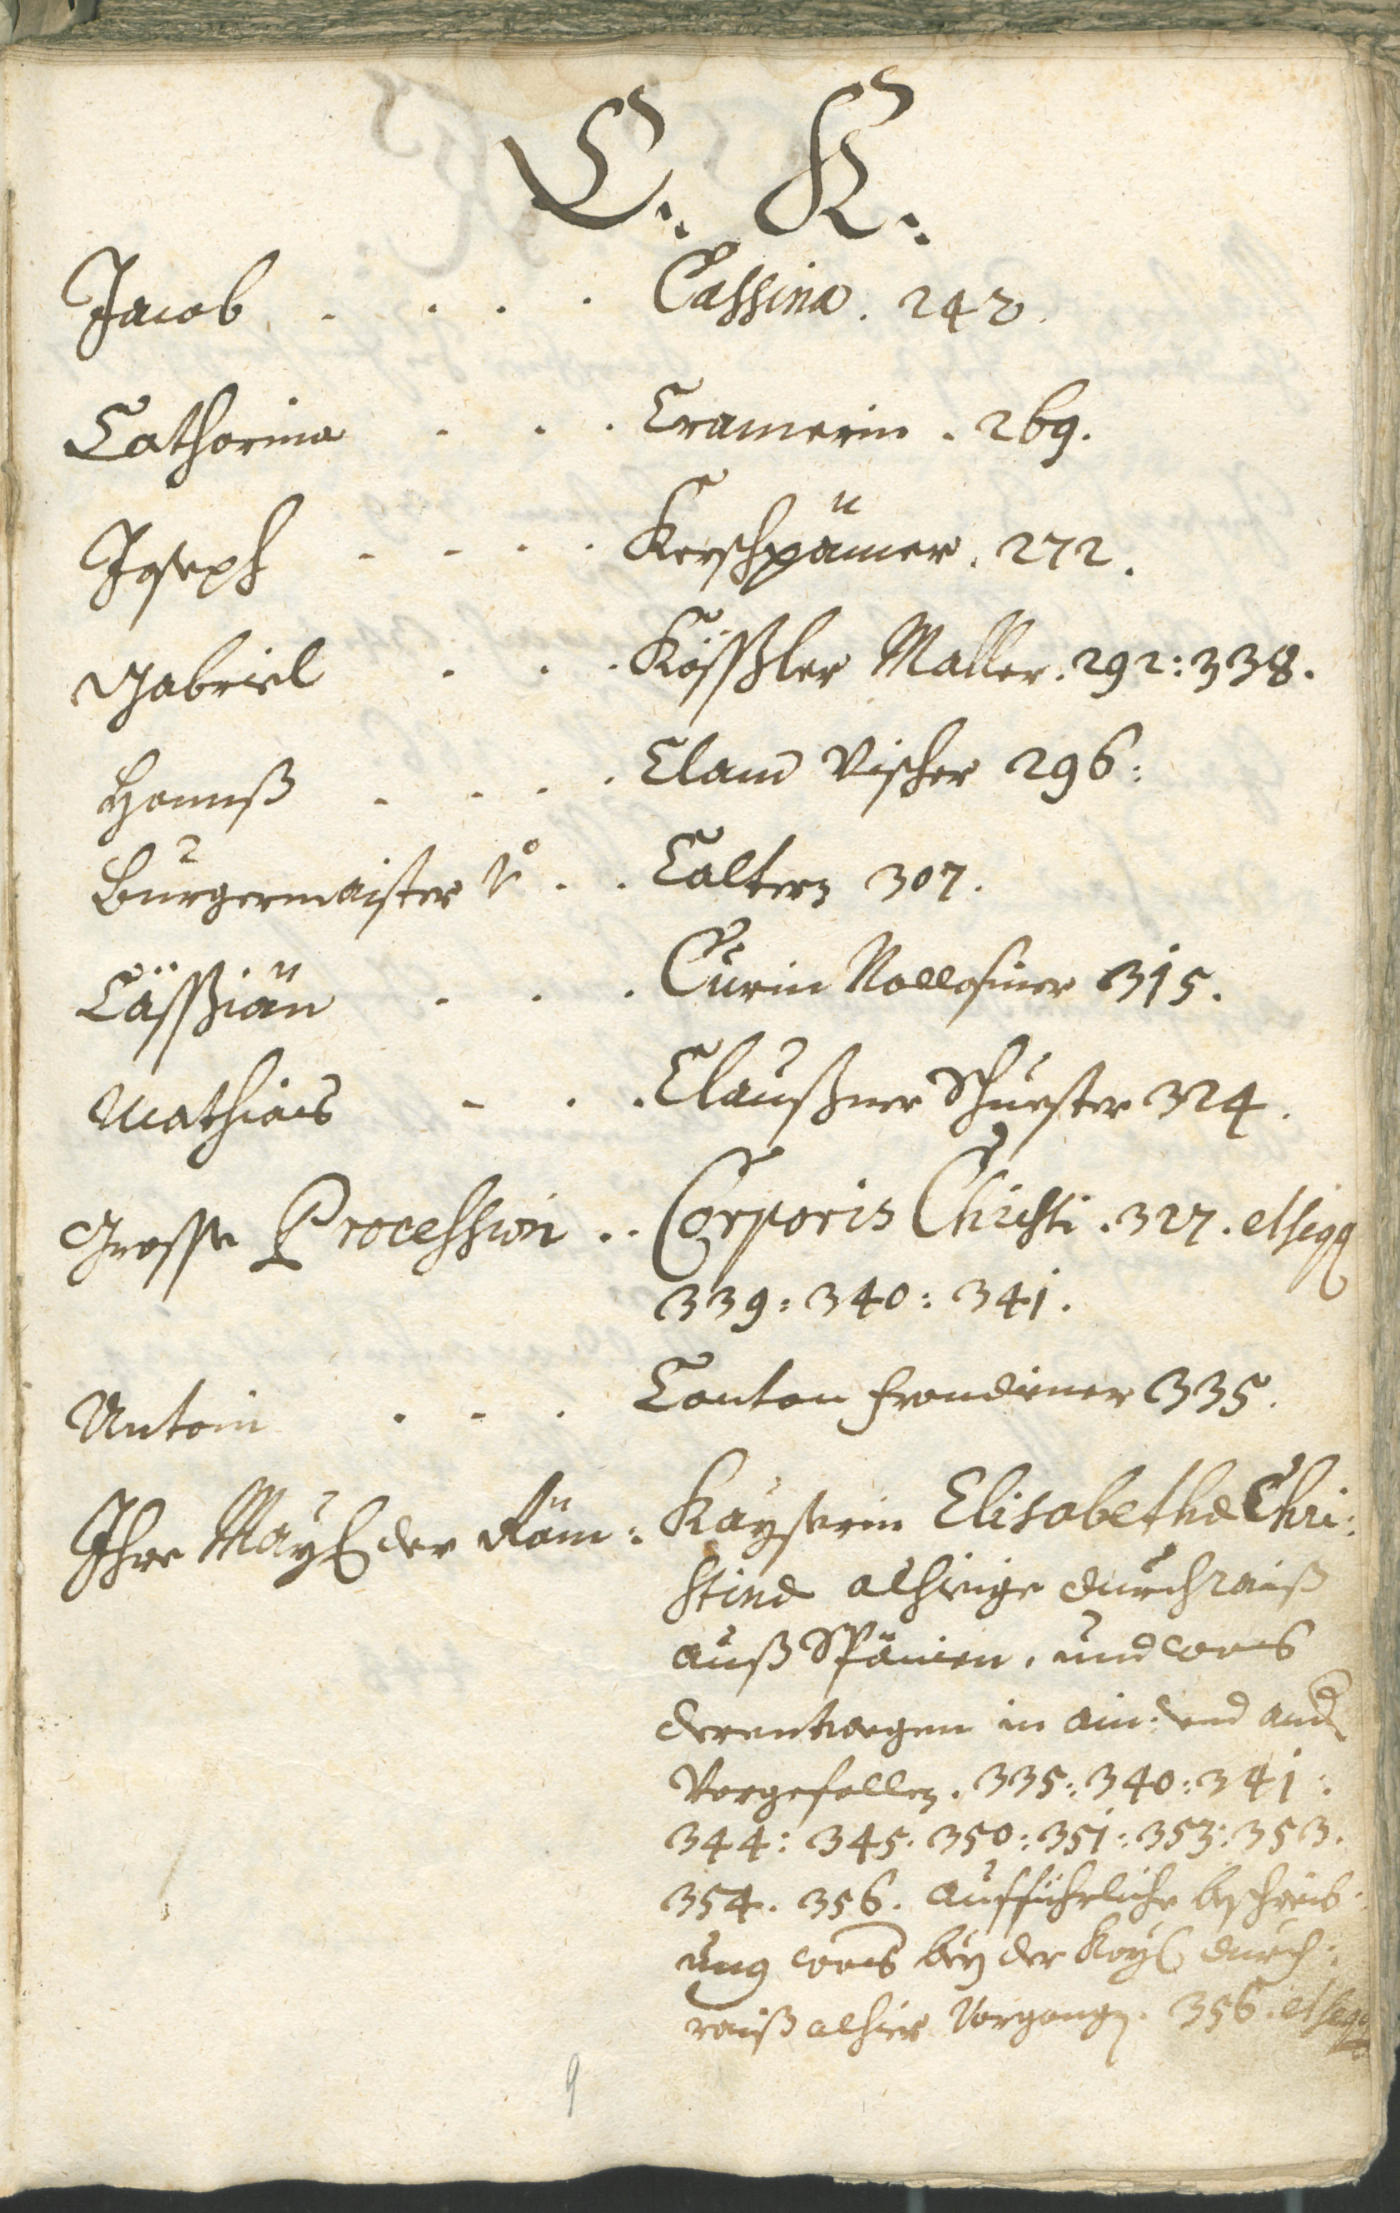 C. K.
Jacob . . . . Cassina. 242.
Catharina . . . Cramerin. 269.
Joseph . . . . Kerschpämer. 272.
Gabriel . . . Kößßler Maller. 292: 338.
Hannß . . . . Clam Vischer 296:
Burgermaister Vº . . Caltern 307.
Cäßßiän . . . Curin 315.
Mathias . . . Claußner Schuester 324.
Grosse Procession . . Corporis Christi. 327. et seqq
339: 340: 341.
Antoni . . . Canton Frondiener 335.
Ihre May: der Röm: Kayserin Elisabetha Chri:
stina alhirige durchraiß
auß Spänien, und was
derentwegen in ain: und and
Vorgefallen. 335: 340: 341:
344: 345. 350: 351: 353: 353.
354. 356. Außführliche beschreib:
ung was bey der Kay: durch:
raiß alhier Vorgang. 356. et seqq
9